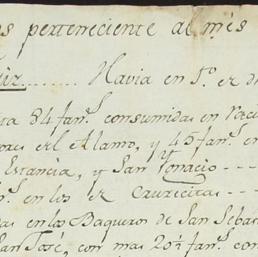 os perteneciente al mes
Havia en 1.o er de
ta 84 fan.s consumidas en
el Alamo, y 45 fan.s en
Estancia, y San Ygnacio
n.s en los er Cruzecitas
as en los Baqueros de San Sebas
San José, con mas 20½ fan.s con